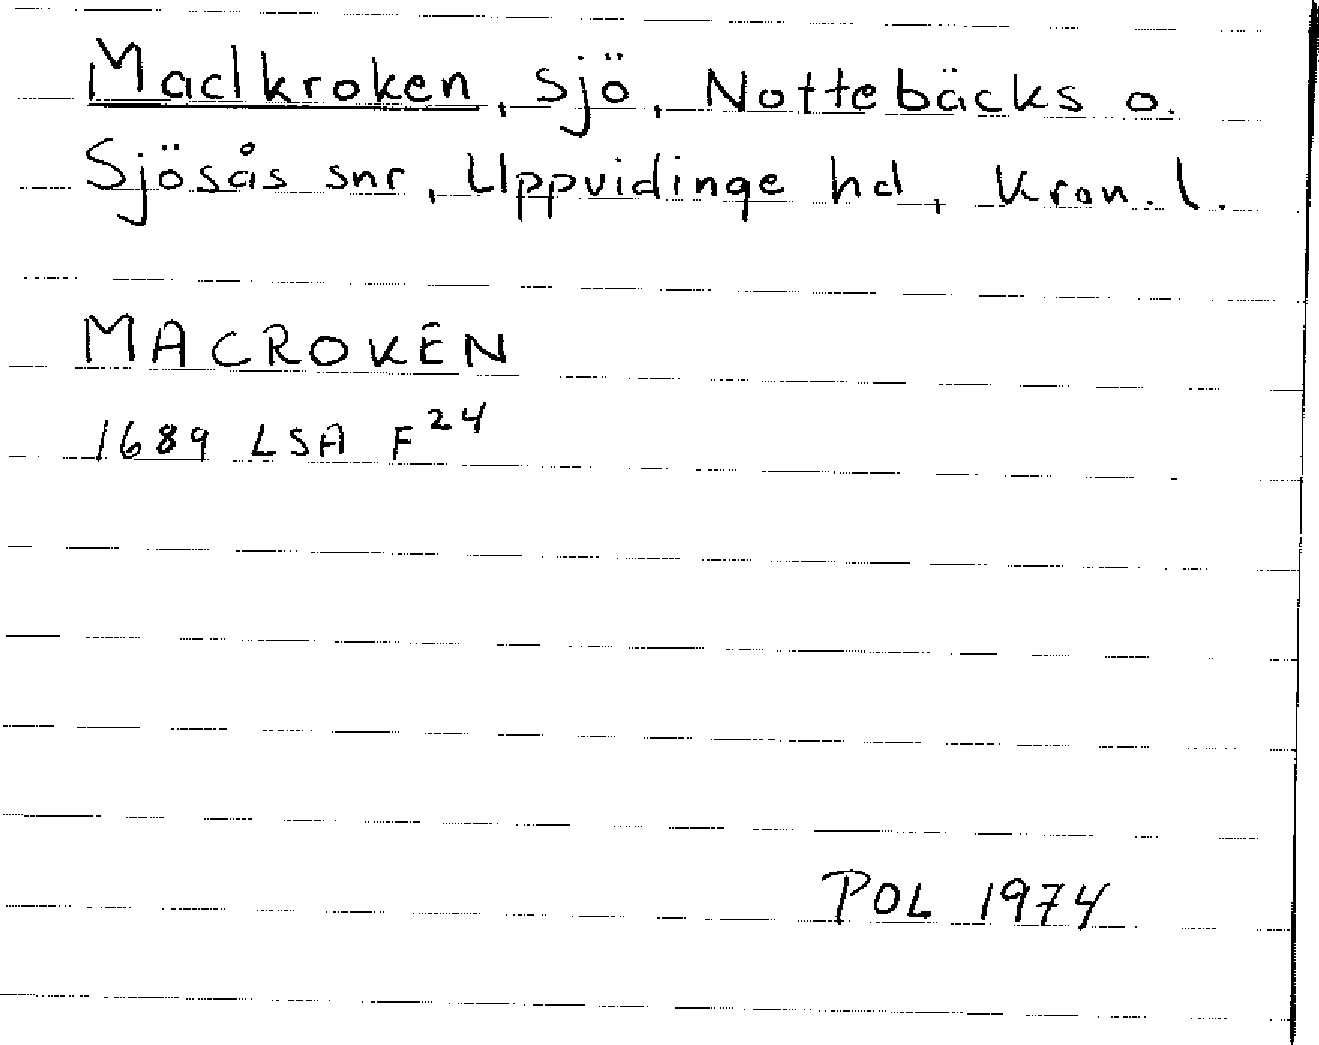 Madkroken, sjö, Nottebäcks o.
Sjösås snr, Uppvidinge hd, Kron. l.
MACROKEN
1689 LSA F24
POL 1974